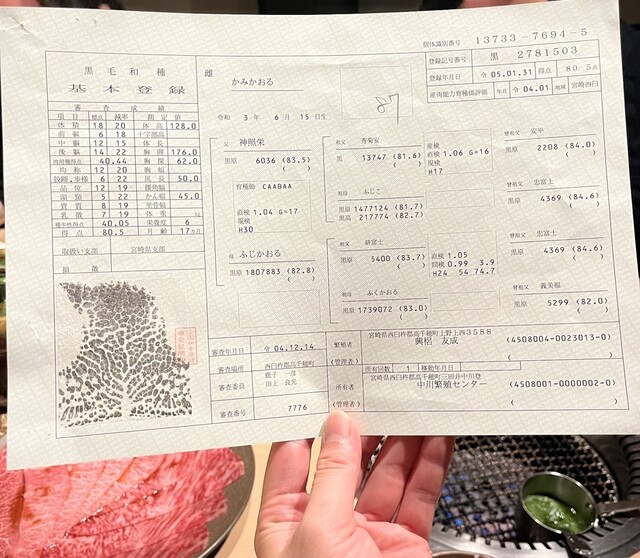 個体識別番号 13733-7694-5
黒毛和種
基本登録
雌 かみかおる
登録記号番号 黒 2781503
登録年月日 令 05.01.31 得点 80.5点
産肉能力育種価評価 年月 令 04.01 地域 宮崎西臼
87
令和 3年 6月 15日生
審査成績
項目 標点 減率 測定値
体積 18 20 体高 128.0
前躯 6 18 十字部高
中躯 12 15 体長
後躯 14 22 胸囲 176.0
肉用種得点 40.44 胸深 62.0
均称 12 20 胸幅
肢蹄・歩様 6 22 尻長 50.0
品位 12 19 腰角幅
頭頸 5 22 かん幅 45.0
資質 8 19 坐骨幅
乳徴 7 19 体重 kg
種牛性得点 40.05 栄養度 6
得点 80.5 月齢 17カ月
取扱い支部 宮崎県支部
損徴
父 神照栄
黒原 6036 (83.5)
( )
育種価 CAABAA
直検 1.04 G=17
現検
H30
母 ふじかおる
黒原 1807883 (82.8)
( )
祖父 秀菊安
黒原 13747 (81.6)
( )
産検
直検 1.06 G=16
現検
H17
祖母 ふじこ
黒原 1477124 (81.7)
黒高 217774 (82.7)
祖父 耕富士
黒原 5400 (83.7)
( )
直検 1.05
間検 0.99 3.9
H24 54 74.7
祖母 ふくかおる
黒原 1739072 (83.0)
( )
曽祖父 安平
黒原 2208 (84.0)
( )
曽祖父 忠富士
黒原 4369 (84.6)
( )
曽祖父 忠富士
黒原 4369 (84.6)
( )
曽祖父 義美福
黒原 5299 (82.0)
( )
審査年月日 令 04.12.14
審査場所 西臼杵郡高千穂町
審査委員
田上 良光
審査番号 7776
繁殖者 宮崎県西臼杵郡高千穂町上野上西3588
興梠 友成 (4508004-0023013-0)
(管理者) ( )
所有回数 1 移動年月日
所有者 宮崎県西臼杵郡高千穂町三田井中川登
中川繁殖センター (4508001-0000002-0)
(管理者) ( )